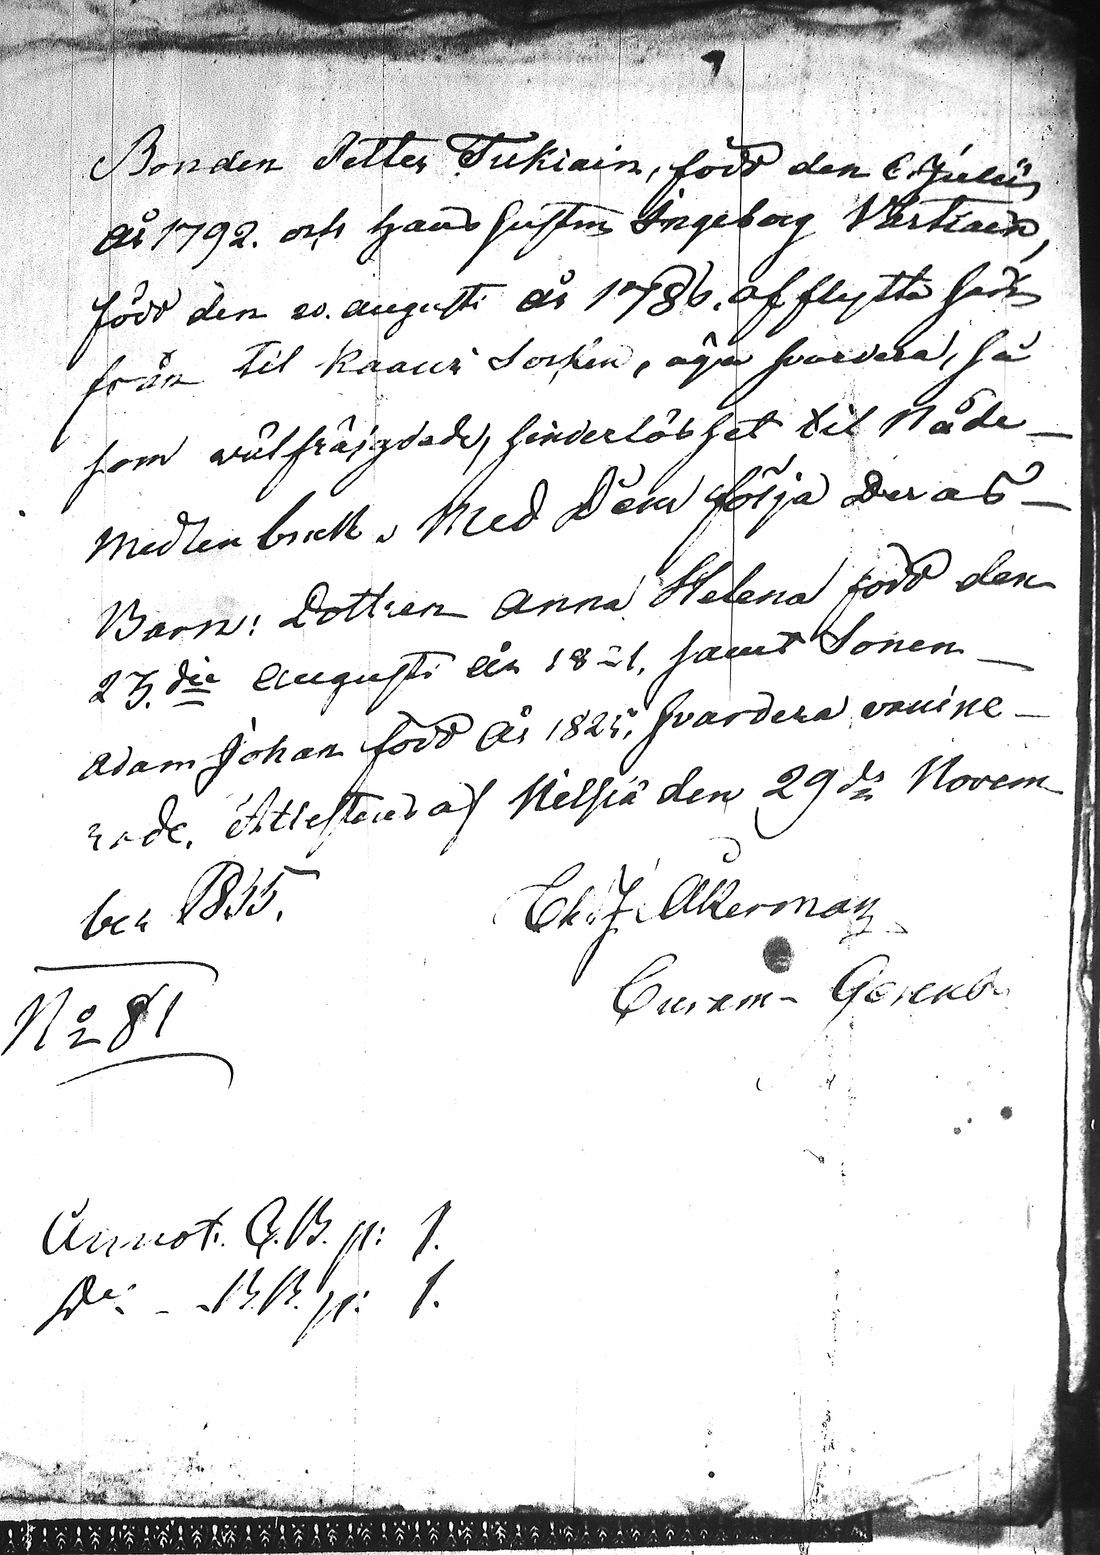 Bonden Petter Tukiain, född den 6. Julii
år 1792. och hans hustru Ingeborg Vartiain,
född den 20. augusti år 1786. afflytta här
från til Kaavi Sochen, äga hvardera, så
som wälfräjgdade, hinderlöshet til Nåde
medlen bruk. Med Dem följa Deras
Barn: Dottren Anna Helena född den
23. die Augusti år 1821. samt Sonen
Adam Johan född år 1825. hvardera
Attesteras af Nilsiä den 29 de Novem
ber 1835.
Åkerman
No 81
Annot. C.B. p: 1.
Do: - - B.B. p: 1.